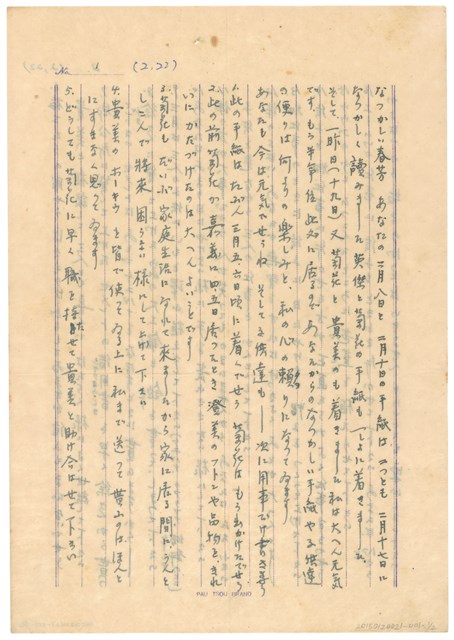 (2.22)
なつかしい春芳 あなたの二月八日と二月十日の手紙は二つとも二月十七日に
なつかしく讀みました 英傑と菊花の手紙も一しょに着きました。
そして、一昨日(十九日)又菊花と貴美のも着きました 私は大へん元気
です。もう半年 此処に居るが、あなたからのなつかしい手紙や子供達
の便りは何よりの楽しみと、私の心の頼りになつてゐます
あなたも今は元気でせうね そして子供達も——次に用事だけ書きませう
1.此の手紙はたぶん三月五六日頃に着くでせう 菊花はもう出かけたでせう
2.此の前菊花が嘉義に四五日居つたとき 澄美のフトンや品物をきれ
いにかたづけたのは大へんよいことです
3.菊花もだいぶ家庭生活になれて来ましたから家に居る間にうんと
しこんで將来困らない様にして上げて下さい
4.貴美のホーキを皆で使つてゐる上に私まで送つて貰ふのはほんと
にすまなく思つてゐます
5.どうしても菊花に早く職を探させて貴美を助け合はせて下さい
PAU TSOU CHANG